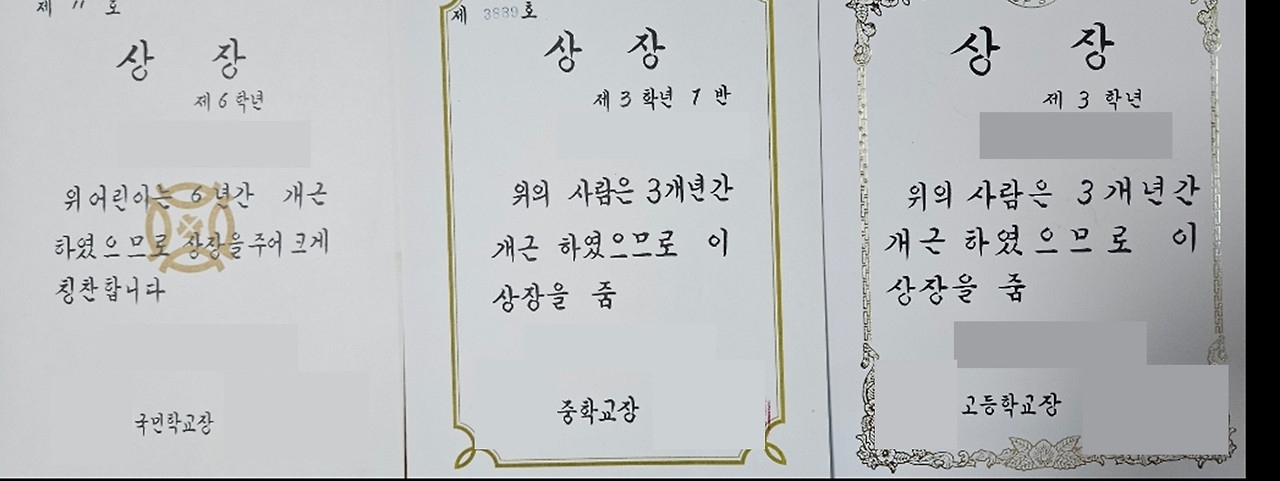 제 11 호
상 장
제 6 학년
위 어린이는 6 년간 개근
하였으므로 상장을 주어 크게
칭찬합니다
국민학교장
제 3889 호
상 장
제 3 학년 7 반
위의 사람은 3개년간
개근 하였으므로 이
상장을 줌
중학교장
상 장
제 3 학년
위의 사람은 3 개년간
개근 하였으므로 이
상장을 줌
고등학교장